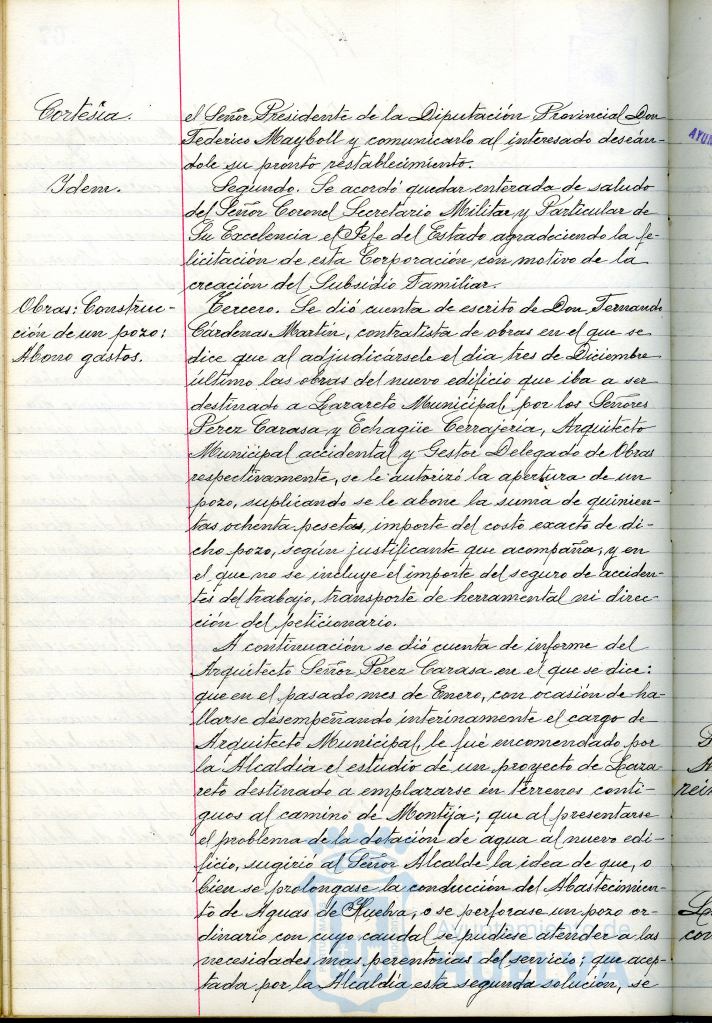 Cortesía.
el Señor Presidente de la Diputación Provincial Don
Federico Mayboll y comunicarlo al interesado deseán-
dole su pronto restablecimiento.
Idem.
Segundo. Se acordó quedar enterada de saludo
del Señor Coronel Secretario Militar y Particular de
Su Excelencia el Jefe del Estado agradeciendo la fe-
licitación de esta Corporación con motivo de la
creación del Subsidio Familiar.
Obras: Construc-
ción de un pozo:
Abono gastos.
Tercero. Se dió cuenta de escrito de Don Fernando
Cárdenas Martín, contratista de obras en el que se
dice que al adjudicársele el dia tres de Diciembre
último las obras del nuevo edificio que iba a ser
destinado a Lazareto Municipal, por los Señores
Pérez Carasa y Echagüe Cerrajería, Arquitecto
Municipal accidental y Gestor Delegado de Obras
respectivamente, se le autorizó la apertura de un
pozo, suplicando se le abone la suma de quinien-
tas ochenta pesetas, importe del costo exacto de di-
cho pozo, según justificante que acompaña, y en
el que no se incluye el importe del seguro de acciden-
tes del trabajo, transporte de herramental ni direc-
ción del peticionario.
A continuación se dió cuenta de informe del
Arquitecto Señor Pérez Carasa en el que se dice:
que en el pasado mes de Enero, con ocasión de ha-
llarse desempeñando interinamente el cargo de
Arquitecto Municipal, le fué encomendado por
la Alcaldía el estudio de un proyecto de Laza-
reto destinado a emplazarse en terrenos conti-
guos al camino de Montija; que al presentarse
el problema de la dotación de agua al nuevo edi-
ficio, sugirió al Señor Alcalde la idea de que, o
bien se prolongase la conducción del Abastecimien-
to de Aguas de Huelva, o se perforase un pozo or-
dinario con cuyo caudal se pudiese atender a las
necesidades mas perentorias del servicio; que acep-
tada por la Alcaldía esta segunda solución, se
Ayuntamiento de
HUELVA